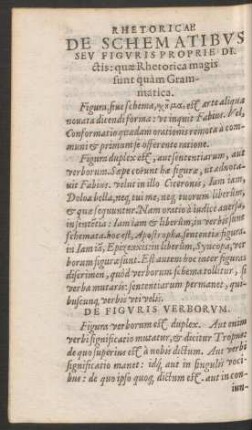 RHETORICAE
DE SCHEMATIBVS
SEV FIGVRIS PROPRIE DI-
ctis: quæ Rhetorica magis
sunt quàm Gram-
matica.
Figura, siue schema, σχῆμα, est arte aliqua
nouata dicendi forma: vt inquit Fabius. Vel,
Conformatio quædam orationis remota à com
muni & primùm se offerente ratione.
Figura duplex est, aut sententiarum, aut
verborum. Sæpe coëunt hæ figuræ, vt adnota-
uit Fabius. velut in illo Ciceronis, Iam iam,
Dolobella, neq; tui me, neq; tuorum liberûm,
& quæ sequuntur. Nam oratio à iudice auersa,
in sententia: Iam iam & liberûm, in verbis sunt
schemata. hoc est, Apostropha, sententiæ figura.
In Iam iā, Epizeuxis: in liberûm, Syncopa, ver
borum figuræ sunt. Est autem hoc inter figuras
discrimen, quòd verborum schema tollitur, si
verba mutaris: sententiarum permanet, qui-
buscunq; verbis vti velis.
DE FIGVRIS VERBORVM.
Figura verborum est duplex. Aut enim
verbi significatio mutatur, & dicitur Tropus:
de quo superius est à nobis dictum. Aut verbi
significatio manet: idq; aut in singulis voci-
bus: de quo ipso quoq; dictum est. aut in con
iun-